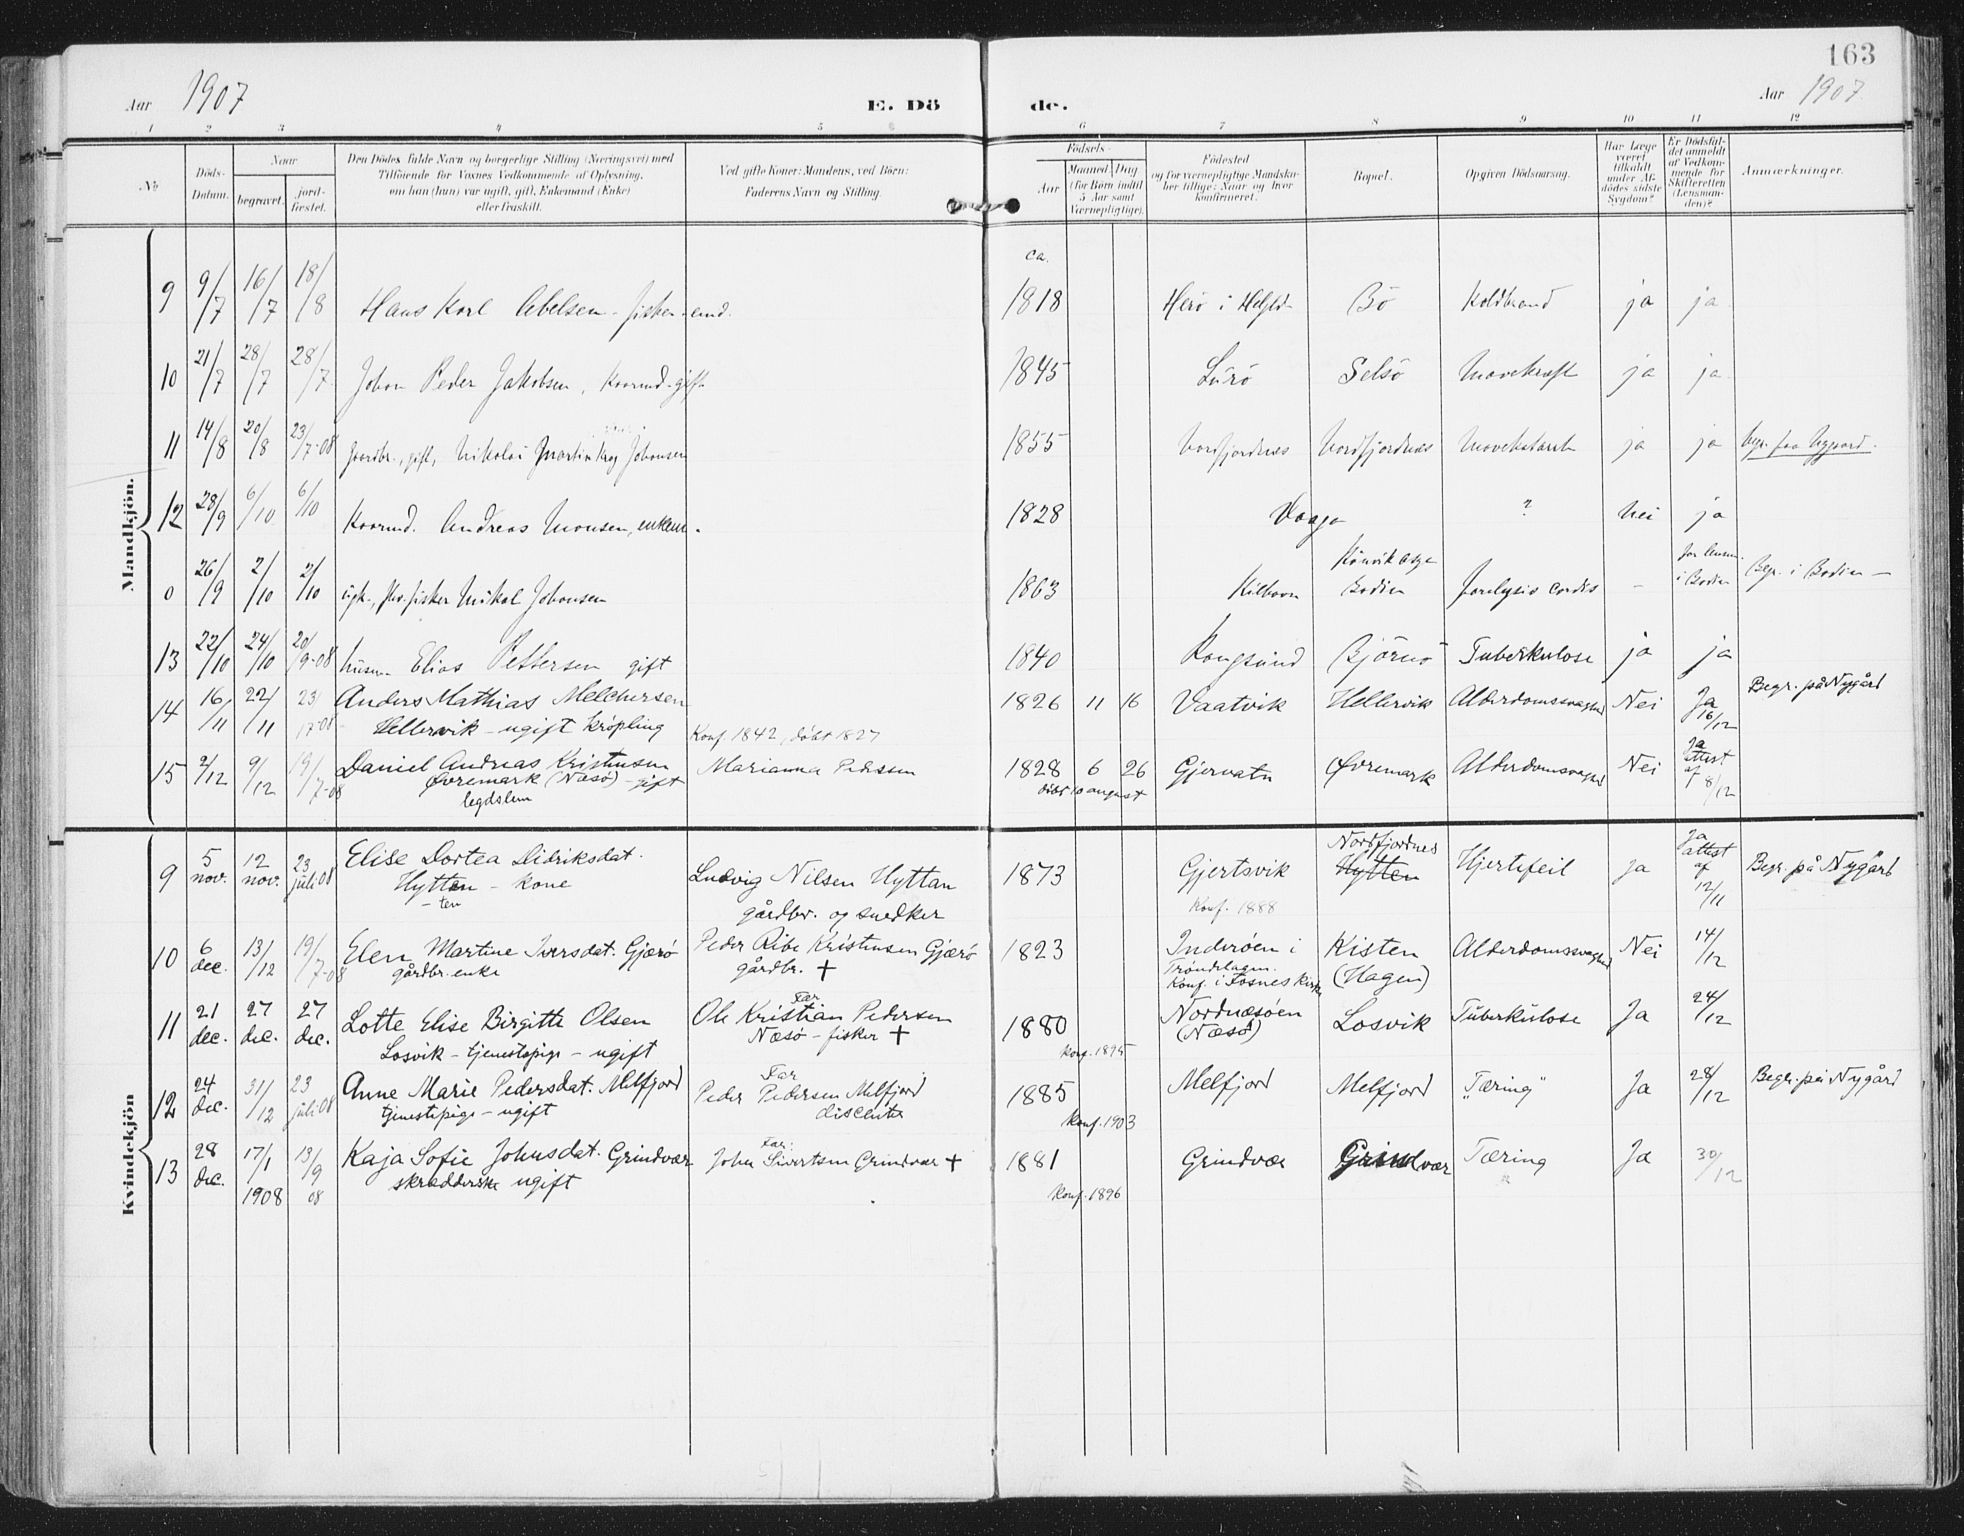 163
Aar 1907 E. Dö de. Aar 1907.
1 2 3 4 5 6 7 8 9 10 11 12
No
Döds-Datum.
Naar
begravet.
jord-fæstet.
Den Dödes fulde Navn og borgerlige Stilling (Næringsvei) med
Tilföiende for Voxnes Vedkommende af Oplysning,
om han (hun) var ugift, gift, Enkemand (Enke)
eller fraskilt.
Ved gifte Koner: Mandens, ved Börn:
Faderens Navn og Stilling.
Födsels-
Aar
Maaned Dag
(for Börn indtil
5 Aar samt
Værnepligtige).
Födested
og for værnepligtige Mandska-
ber tillige: Naar og hvor
konfirmeret.
Bopæl.
Opgiven Dödsaarsag.
Har Læge
været
tilkaldt
under Af-
dödes sidste
Sygdom?
Er Dödsfal-
det anmeldt
af Vedkom-
mende for
Skifteretten
(Lensman-
den)?
Anmærkninger.
Mandkjön.
ca.
9 9/7 16/7 18/8 Hans Karl Abelsen - fisker - emd. 1818 Herö i Helgld Bö Koldbrand ja ja
10 21/7 28/7 28/7 Johan Peder Jakobsen, Kaarmd. gift 1845 Lurö Selsö Mavekræft ja ja
11 14/8 20/8 23/7-08 Gaardbr., gift, Nikolai Martin Krog Johansen 1855 Nordfjordnes Nordfjordnes Mavekatarrh ja ja begr. paa Nygaard.
12 28/9 6/10 6/10 Kaarmd. Andreas Monsen, enkem. 1828 Vaage ? Nei ja
0 26/9 2/10 2/10 ugk., fhv. fisker Mikal Johansen 1863 Kilbovn Rönvik asyl Bodin paralysis cordis - for lensm. i Bodin Begr. i Bodin —
13 22/10 24/10 20/9-08 husm. Elias Pettersen gift 1840 Rangsund Björnö Tuberkulose ja ja
14 16/11 22/11 23/7-08 Anders Mathias Melchersen 1826 11 16 Vaatvik Hellervik Alderdomssvaghed Nei Ja 16/12 Begr. på Nygård
Hellervik - ugift kröpling Konf. 1842, döbt 1827
15 2/12 9/12 19/7-08 Daniel Andreas Kristensen Marianna Pedersen 1828 6 26 Gjervatn Øvremark Alderdomssvaghed Nei Ja attest af 8/12
Øvremark (Næsö) - gift
legdslem
10 august
Kvindekjön
9 5 nov. 12 nov. 23 juli 08 Elise Dortea Didriksdat. Ludvig Nilsen Hyttan 1873 Gjertsvik Nordfjordnes Hytten Hjertefeil Ja Ja attest af 12/11 Begr. på Nygård
Hytten - kone gårdbr. og snedker Konf. 1888
- ten
10 6 dec. 13/12 19/7-08 Elen Martine Iversdat. Gjærö Peder Ribe Kristensen Gjærö 1823 Inderøen i Kisten Alderdomssvaghed Nei 14/12
gårdbr. enke gårdbr. + Trøndelagen. (Hagen)
Konf. i Fosnes kirke
11 21 dec. 27 dec. 27 dec. Lotte Elise Birgitte Olsen Far Ole Kristian Pedersen 1880 Nordnæsöen Losvik Tuberkulose Ja 24/12
Losvik - tjenestepige - ugift Næsö - fisker + Konf. 1895 (Næsö)
12 24 dec. 31/12 23 juli 08 Anne Marie Pedersdat. Melfjord Far Peder Pedersen Melfjord 1885 Melfjord Melfjord „Tæring" Ja 28/12 Begr. på Nygård
tjenestepige - ugift dissenter Konf. 1903
13 28 dec. 17/1 1908 13/9 08 Kaja Sofie Johnsdat. Grindvær Far: John Sivertsen Grindvær + 1881 Grindvær Grindvær Tæring Ja 30/12
skrædderske ugift Konf. 1896